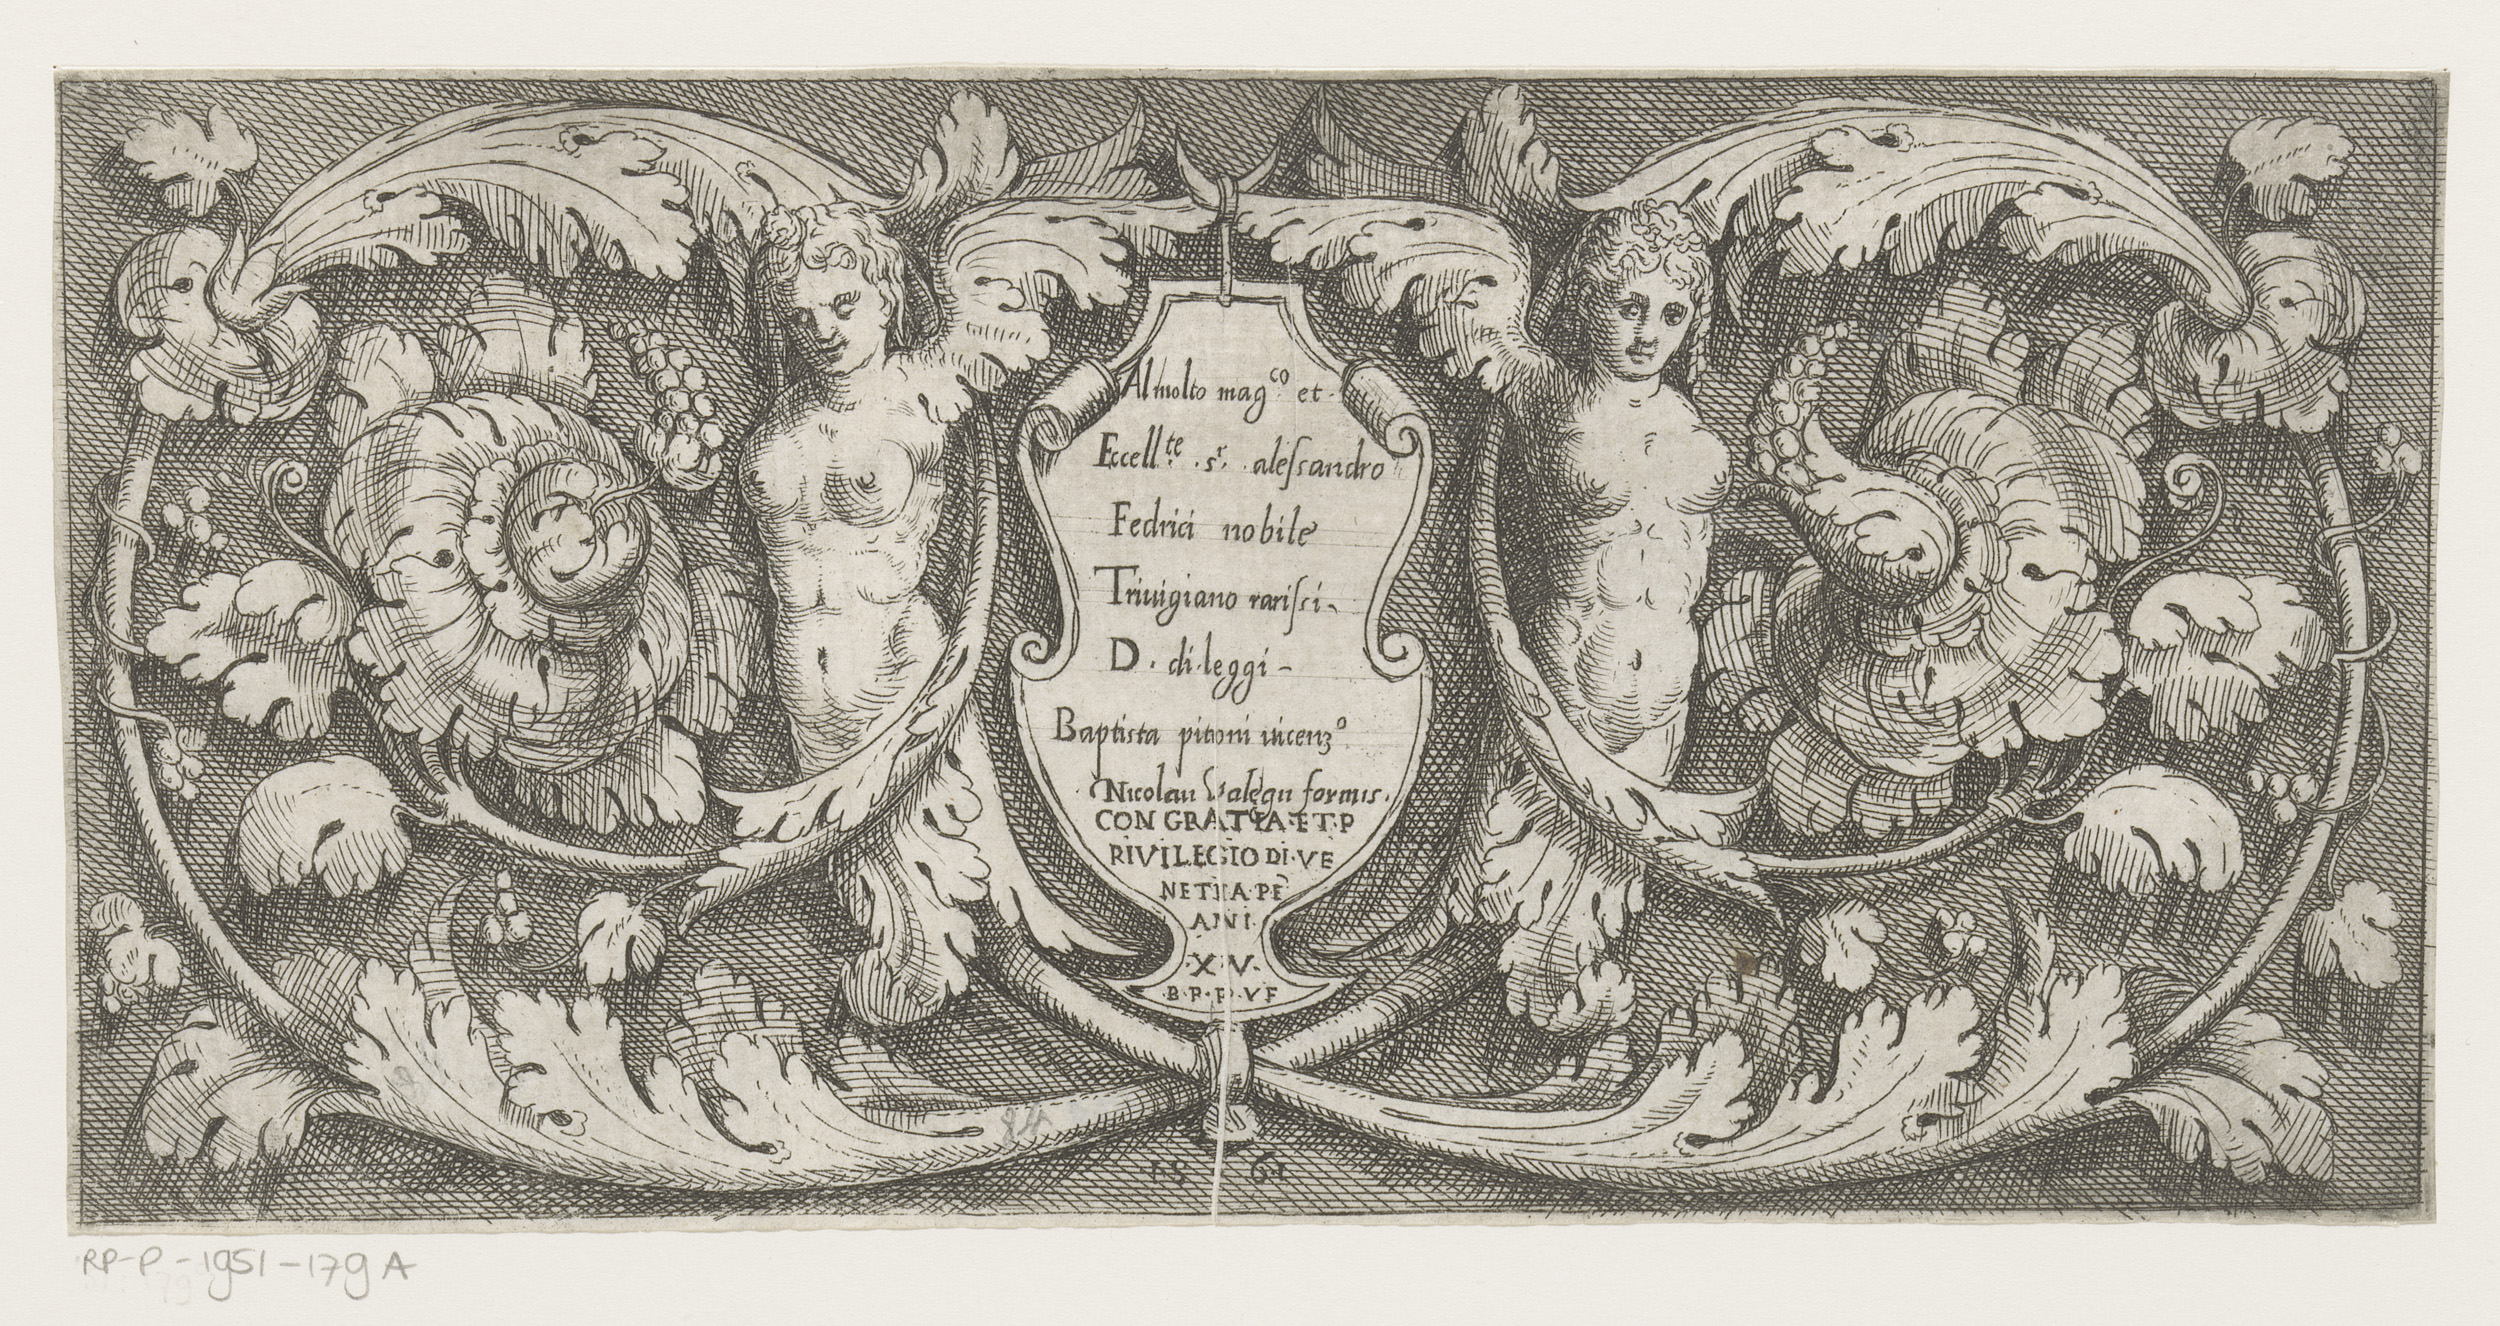 Al molto mag.co et.
Eccell.te .sr. alessandro
Fedrici nobile
Trivigiano rarissi-
D. di leggi-
Baptista pitoni vicenzo
Nicolau Valegii formis.
CON GRATIA·ET·P
RIVILEGIO DI·VE
NETIA·PE
ANI·
·X·V·
·B·P·F·V·F
15 61
RP-P-1951-179A